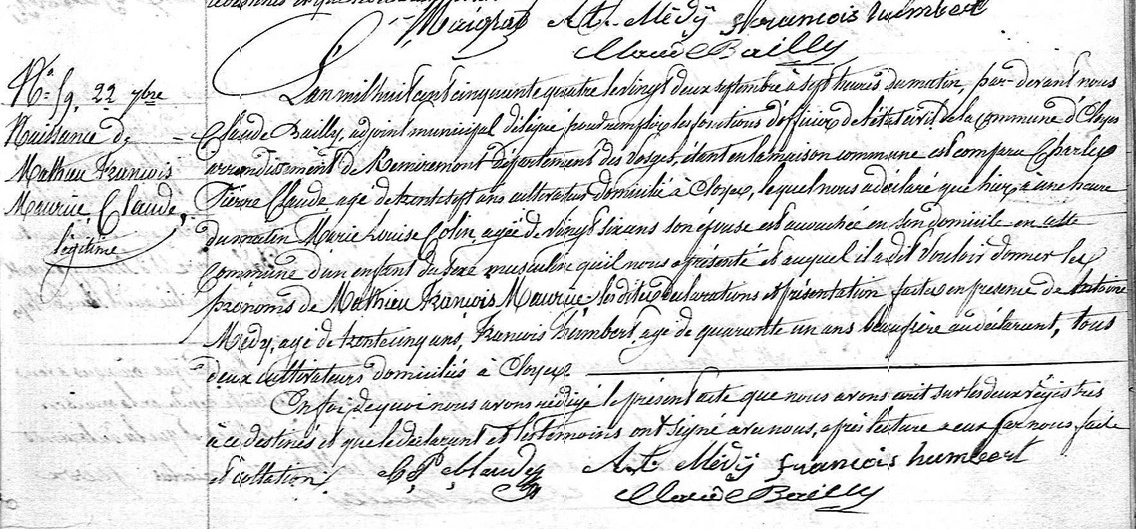 At. Médy françois humbert
Claude Bailly
No. 59. 22 7bre
Naissance de
Mathieu François
Maurice, Claude,
légitime
L'an mil huit cent cinquante quatre le vingt deux septembre à sept heures du matin, par-devant nous
Claude Bailly, adjoint municipal délégué pour remplir les fonctions d'officier de l'état civil de la commune d'Eloyes
arrondissement de Remiremont département des Vosges, étant en la maison commune est comparu Charles
Pierre Claude agé de trente sept ans cultivateur domicilié à Eloyes, lequel nous a déclaré que hier à une heure
du matin Marie Louise Colin, agée de vingt six ans son épouse est accouchée en son domicile en cette
commune d'un enfant du sexe masculin qu'il nous a présenté et auquel il a dit vouloir donner les
prénoms de Mathieu François Maurice, les dites déclarations et présentation faites en présence de Antoine
Médy, agé de trente cinq ans, François humbert, agé de quarante un ans beau frère au déclarant, tous
deux cultivateurs domiciliés à Eloyes.
En foi de quoi nous avons rédigé le présent acte que nous avons écrit sur les deux régistres
à ce destinés et que le déclarant et les témoins ont signé avec nous, après lecture a eux par nous faite
et collation. C. P. Claudey At. Médy françois humbert
Claude Bailly